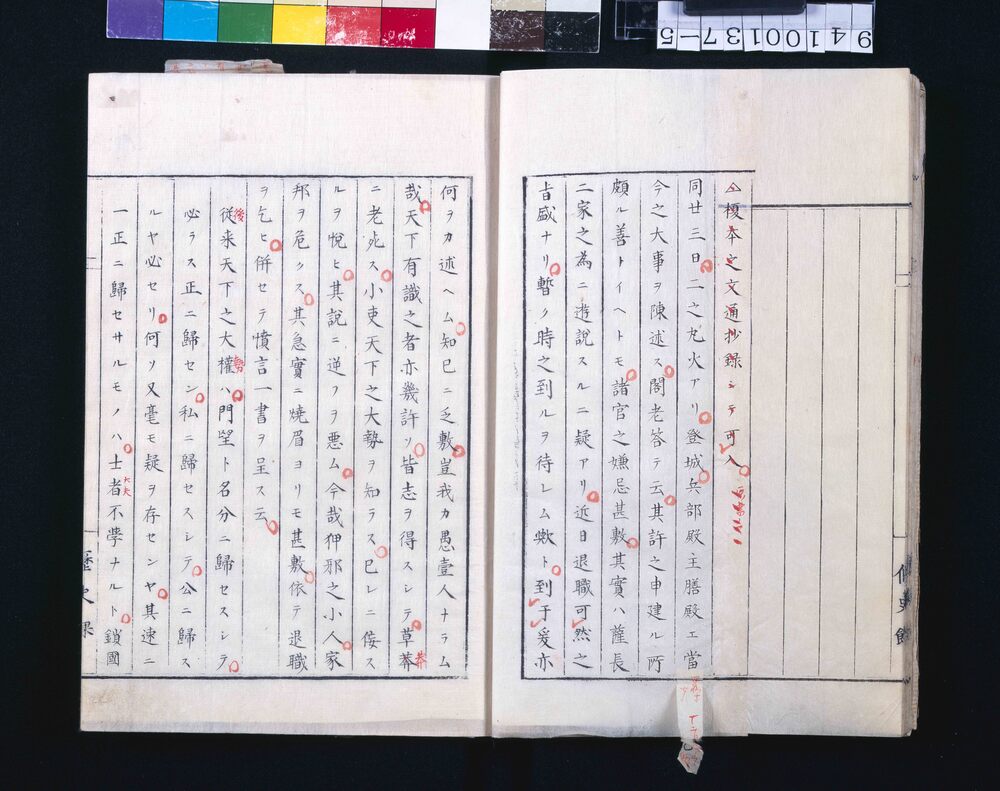 仝榎本定文通抄録シテ可入
同廿三日二之丸火アリ登城兵部殿主膳殿エ當
今之大事ヲ陳述ス閣老答テ云其許之申建ル所
頗ル善トイヘトモ諸官之嫌忌甚敷其實ハ薩長
二家之為ニ遊説スルニ疑アリ近日退職可然之
旨盛ナリ暫ク時之到ルヲ待レム歟ト到于爰亦
何ヲカ述ヘム知已ニ乏敷豈我カ愚壹人ナラム
哉天下有識之者亦幾許ソ皆志ヲ得スシテ草莽
ニ老死ス小吏天下之大勢ヲ知ラス已レニ侫ス
ルヲ悦ヒ其説ニ逆フヲ悪ム今哉狎邪之小人家
邦ヲ危クス其急實ニ焼眉ヨリモ甚敷依テ退職
ヲ乞ヒ併セテ憤言一書ヲ呈ス云
従来天下之大權ハ門望ト名分ニ歸セスシテ
必ラス正ニ歸セン私ニ歸セスシテ公ニ歸ス
ルヤ必セリ何ソ又毫モ疑ヲ存センヤ其速ニ
一正ニ歸セサルモノハ士者不學ナルト鎖國
歴史課
修史館
9410013 7-5